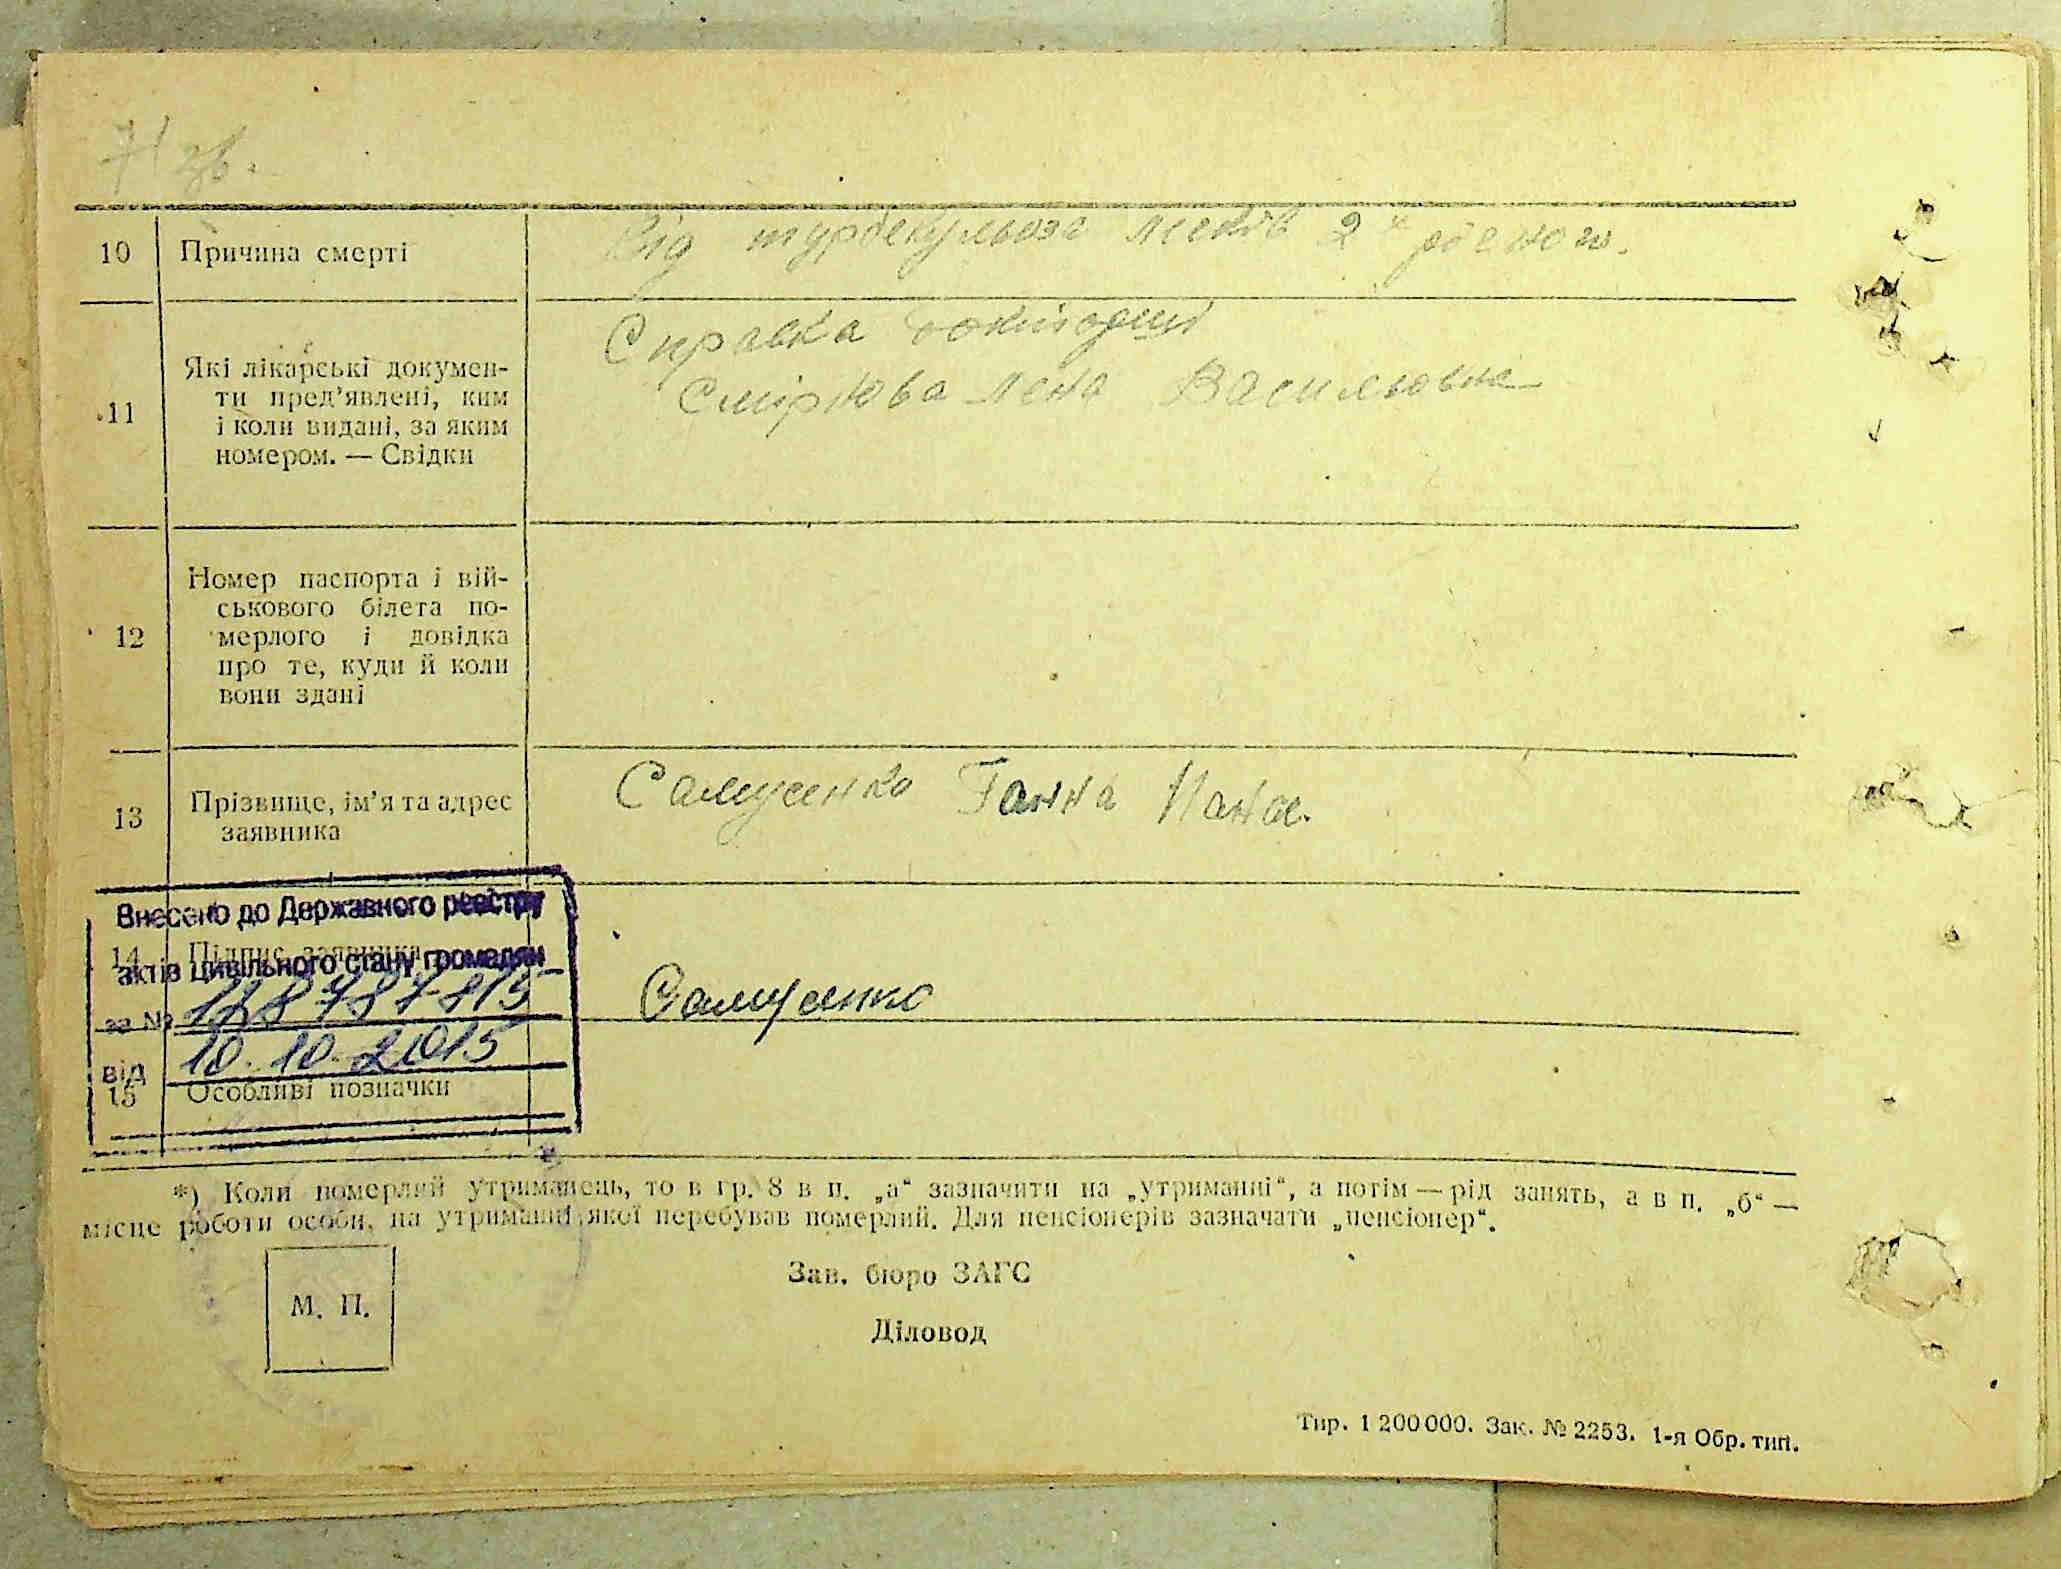 10 Причина смерті
Від турбекульоза
11 Які лікарські докумен-
ти пред'явлені, ким
і коли видані, за яким
номером. — Свідки
Справка
Васильовна
12 Номер паспорта і вій-
ськового білета по-
мерлого і довідка
про те, куди й коли
вони здані
13 Прізвище, ім'я та адрес
заявника
Самусенко Ганна
Внесено до Державного реєстру
14 Підпис заявника
актів цивільного стану громадян
Самусенко
за № 128787815
від 10.10.2015
15 Особливі позначки
*) Коли померлий утриманець, то в гр. 8 в п. „а“ зазначити на „утриманні“, а потім — рід занять, а в п. „б“ —
місце роботи особи, на утриманні якої перебував померлий. Для пенсіонерів зазначати „пенсіонер“.
Зав. бюро ЗАГС
М. П.
Діловод
Тир. 1 200 000. Зак. № 2253. 1-я Обр. тип.